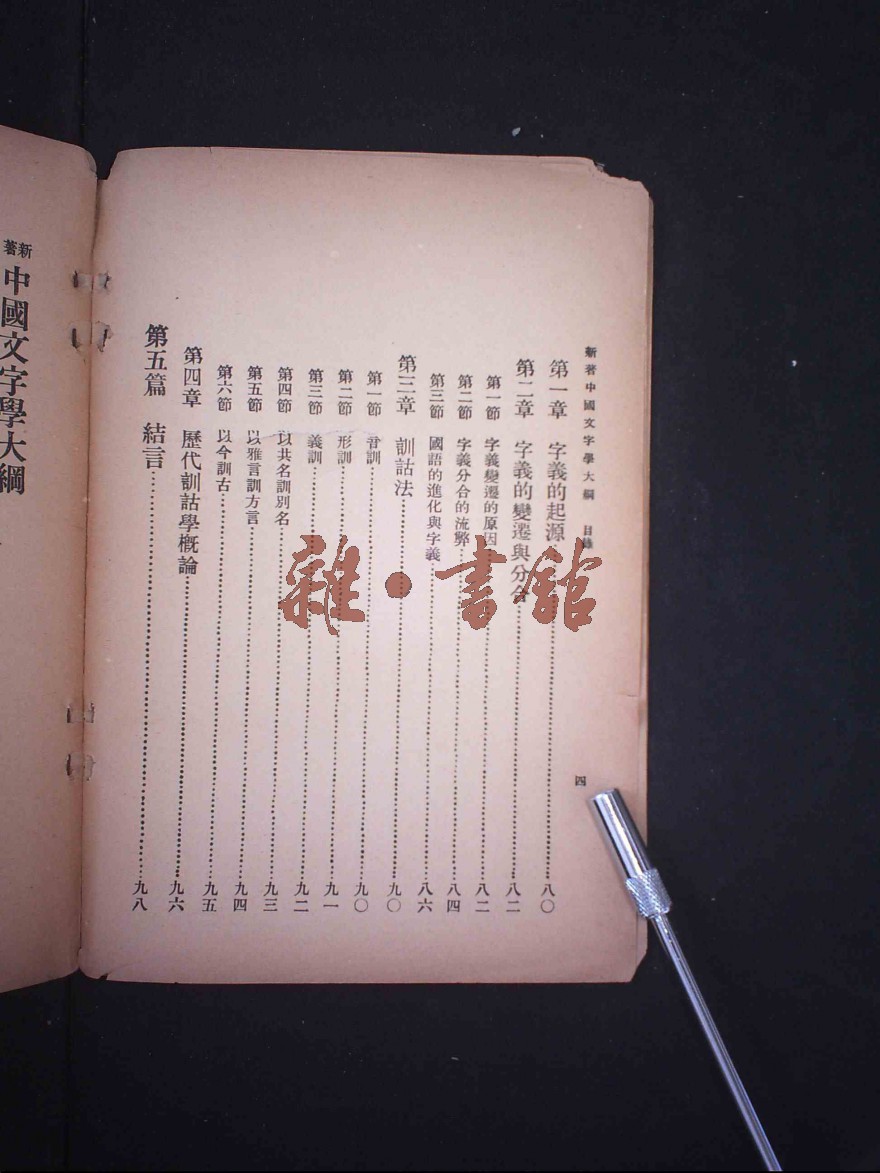 新著中國文字學大綱 目錄
四
第一章 字義的起源……八〇
第二章 字義的變遷與分合……八二
第一節 字義變遷的原因……八二
第二節 字義分合的流弊……八四
第三節 國語的進化與字義……八六
第三章 訓詁法……九〇
第一節 音訓……九〇
第二節 形訓……九一
第三節 義訓……九二
第四節 以共名訓別名……九三
第五節 以雅言訓方言……九四
第六節 以今訓古……九五
第四章 歷代訓詁學概論……九六
第五篇 結言……九八
新著中國文字學大綱
雜·書館